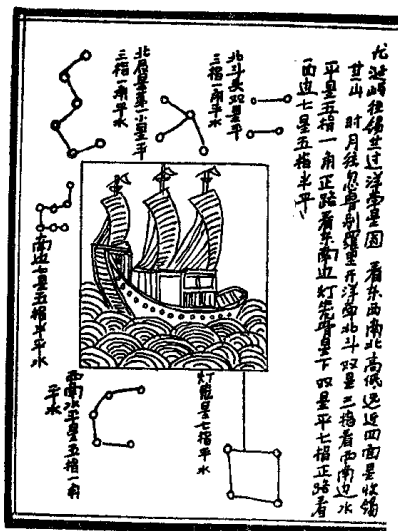 龙涎屿往锡兰过洋牵星图 看东西南北高低远近四面星收锡
兰山 时月往忽鲁别罗里开洋牵北斗双星三指看西南边水
平星五指一角正路看东南边灯笼骨星下双星平七指正路看
西边七星五指半平
北斗头双星平
三指一角平水
北辰星第一小星平
三指一角平水
西边七星五指半平水
灯笼星七指平水
西南水平星五指一角
平水